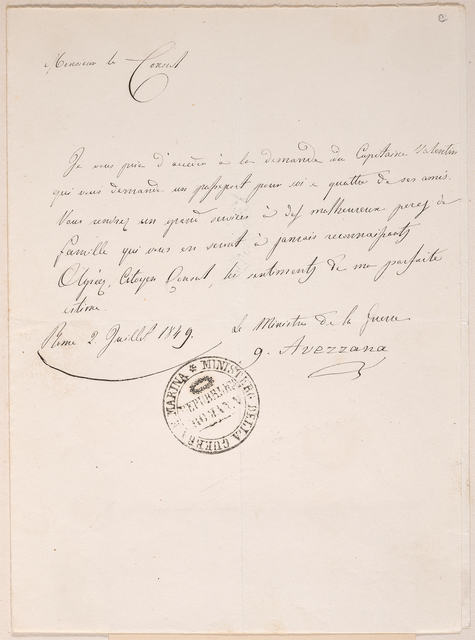 C
Monsieur le Consul
Je vous prie d'accéder à la demande du Capitaine Valentin
qui vous demande un passeport pour soi e quattre de ses amis.
Vous rendrez un grand services à des malheureux peres de
famille qui vous en seront à jamais reconnaissants
Agréez, Citoyen Consul, les sentiments de ma parfaite
estime.
Rome 2 Juillet 1849.
Le Ministre de la Guerre
G. Avezzana
MINISTERO DELLA GUERRA E MARINA
REPUBBLICA
ROMANA